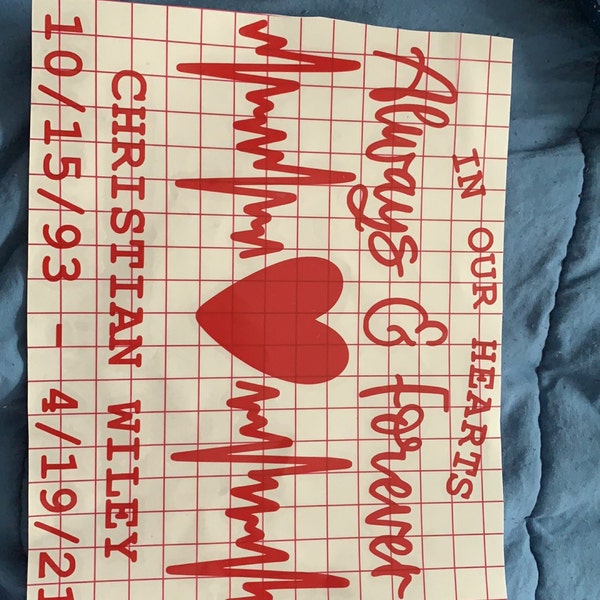 IN OUR HEARTS
Always & forever
CHRISTIAN WILEY
10/15/93 - 4/19/21